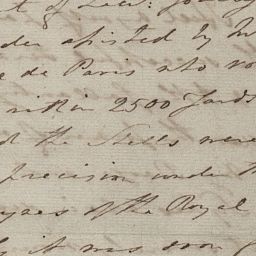 t of Lew:
der assisted by M
e de Paris who
within 2500 Yards
d the Shells were
precision under th
of the Royal
it was soon